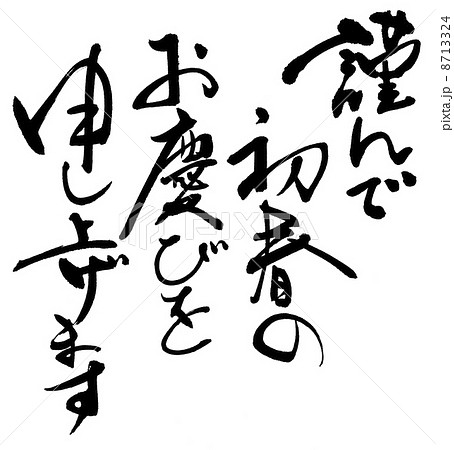 謹んで
初春の
お慶びを
申し上げます
PIXTA
pixta.jp - 8713324